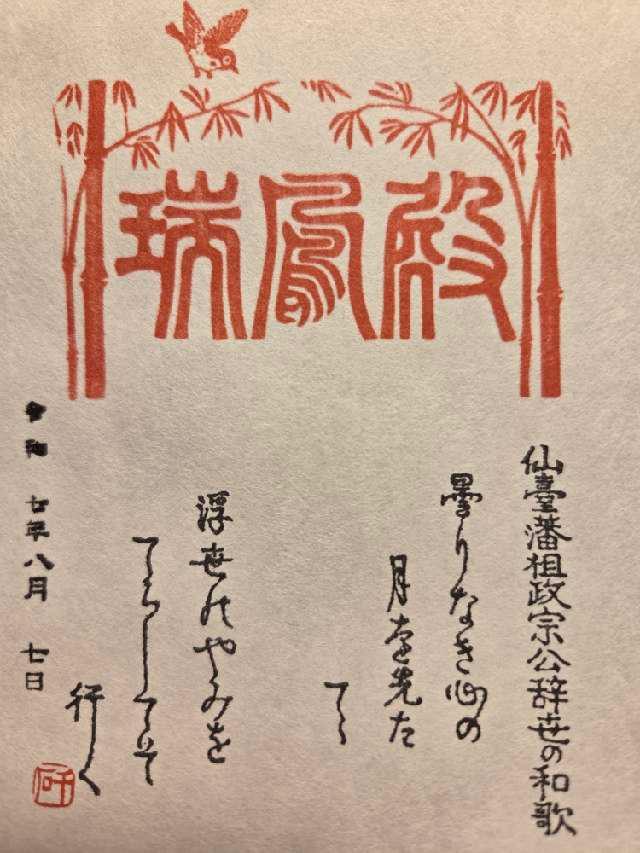 瑞鳳殿
仙臺藩祖政宗公辞世の和歌
曇りなき心の
月を先た
てゝ
浮世のやみを
てらしてそ
行く
令和 七年八月 七日